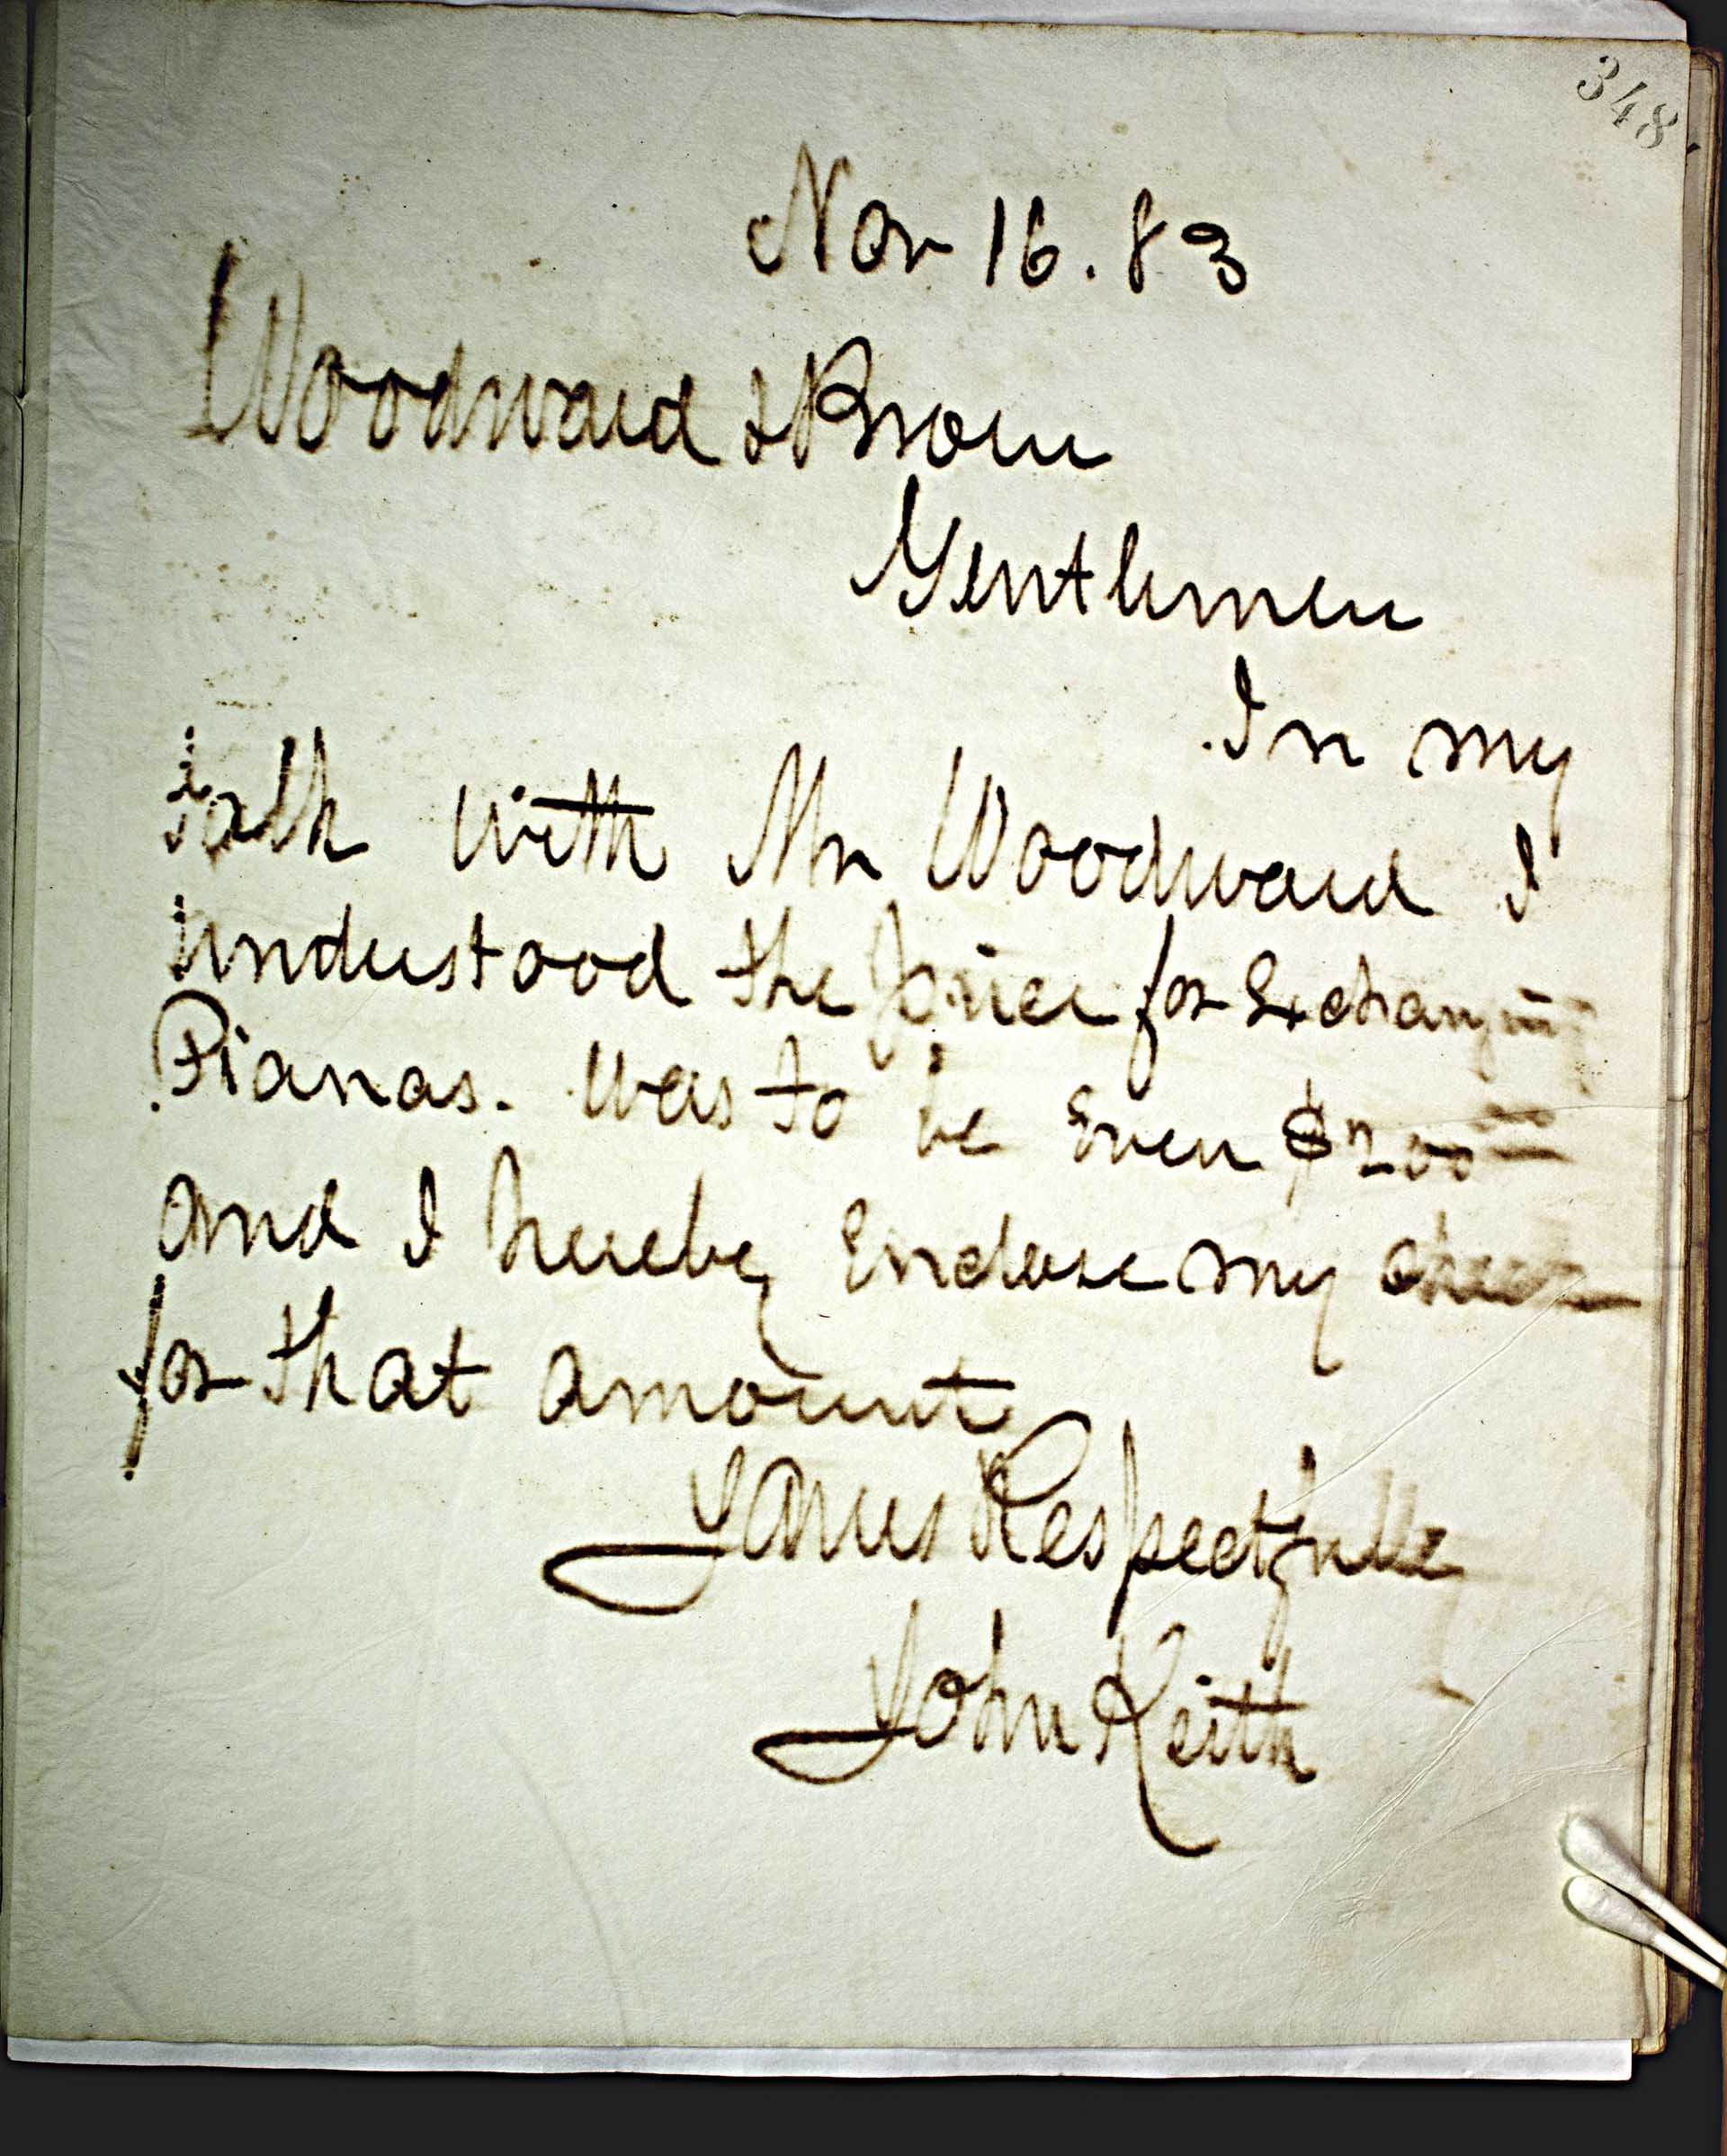 348
Nov 16. 83
Woodward & Brown
Gentlemen
In my
talk with Mr Woodward I
understood the price for Exchanging
Pianos. was to be Even $200=
and I hereby Enclose my check
for that amount
Yours Respectfully
John Keith